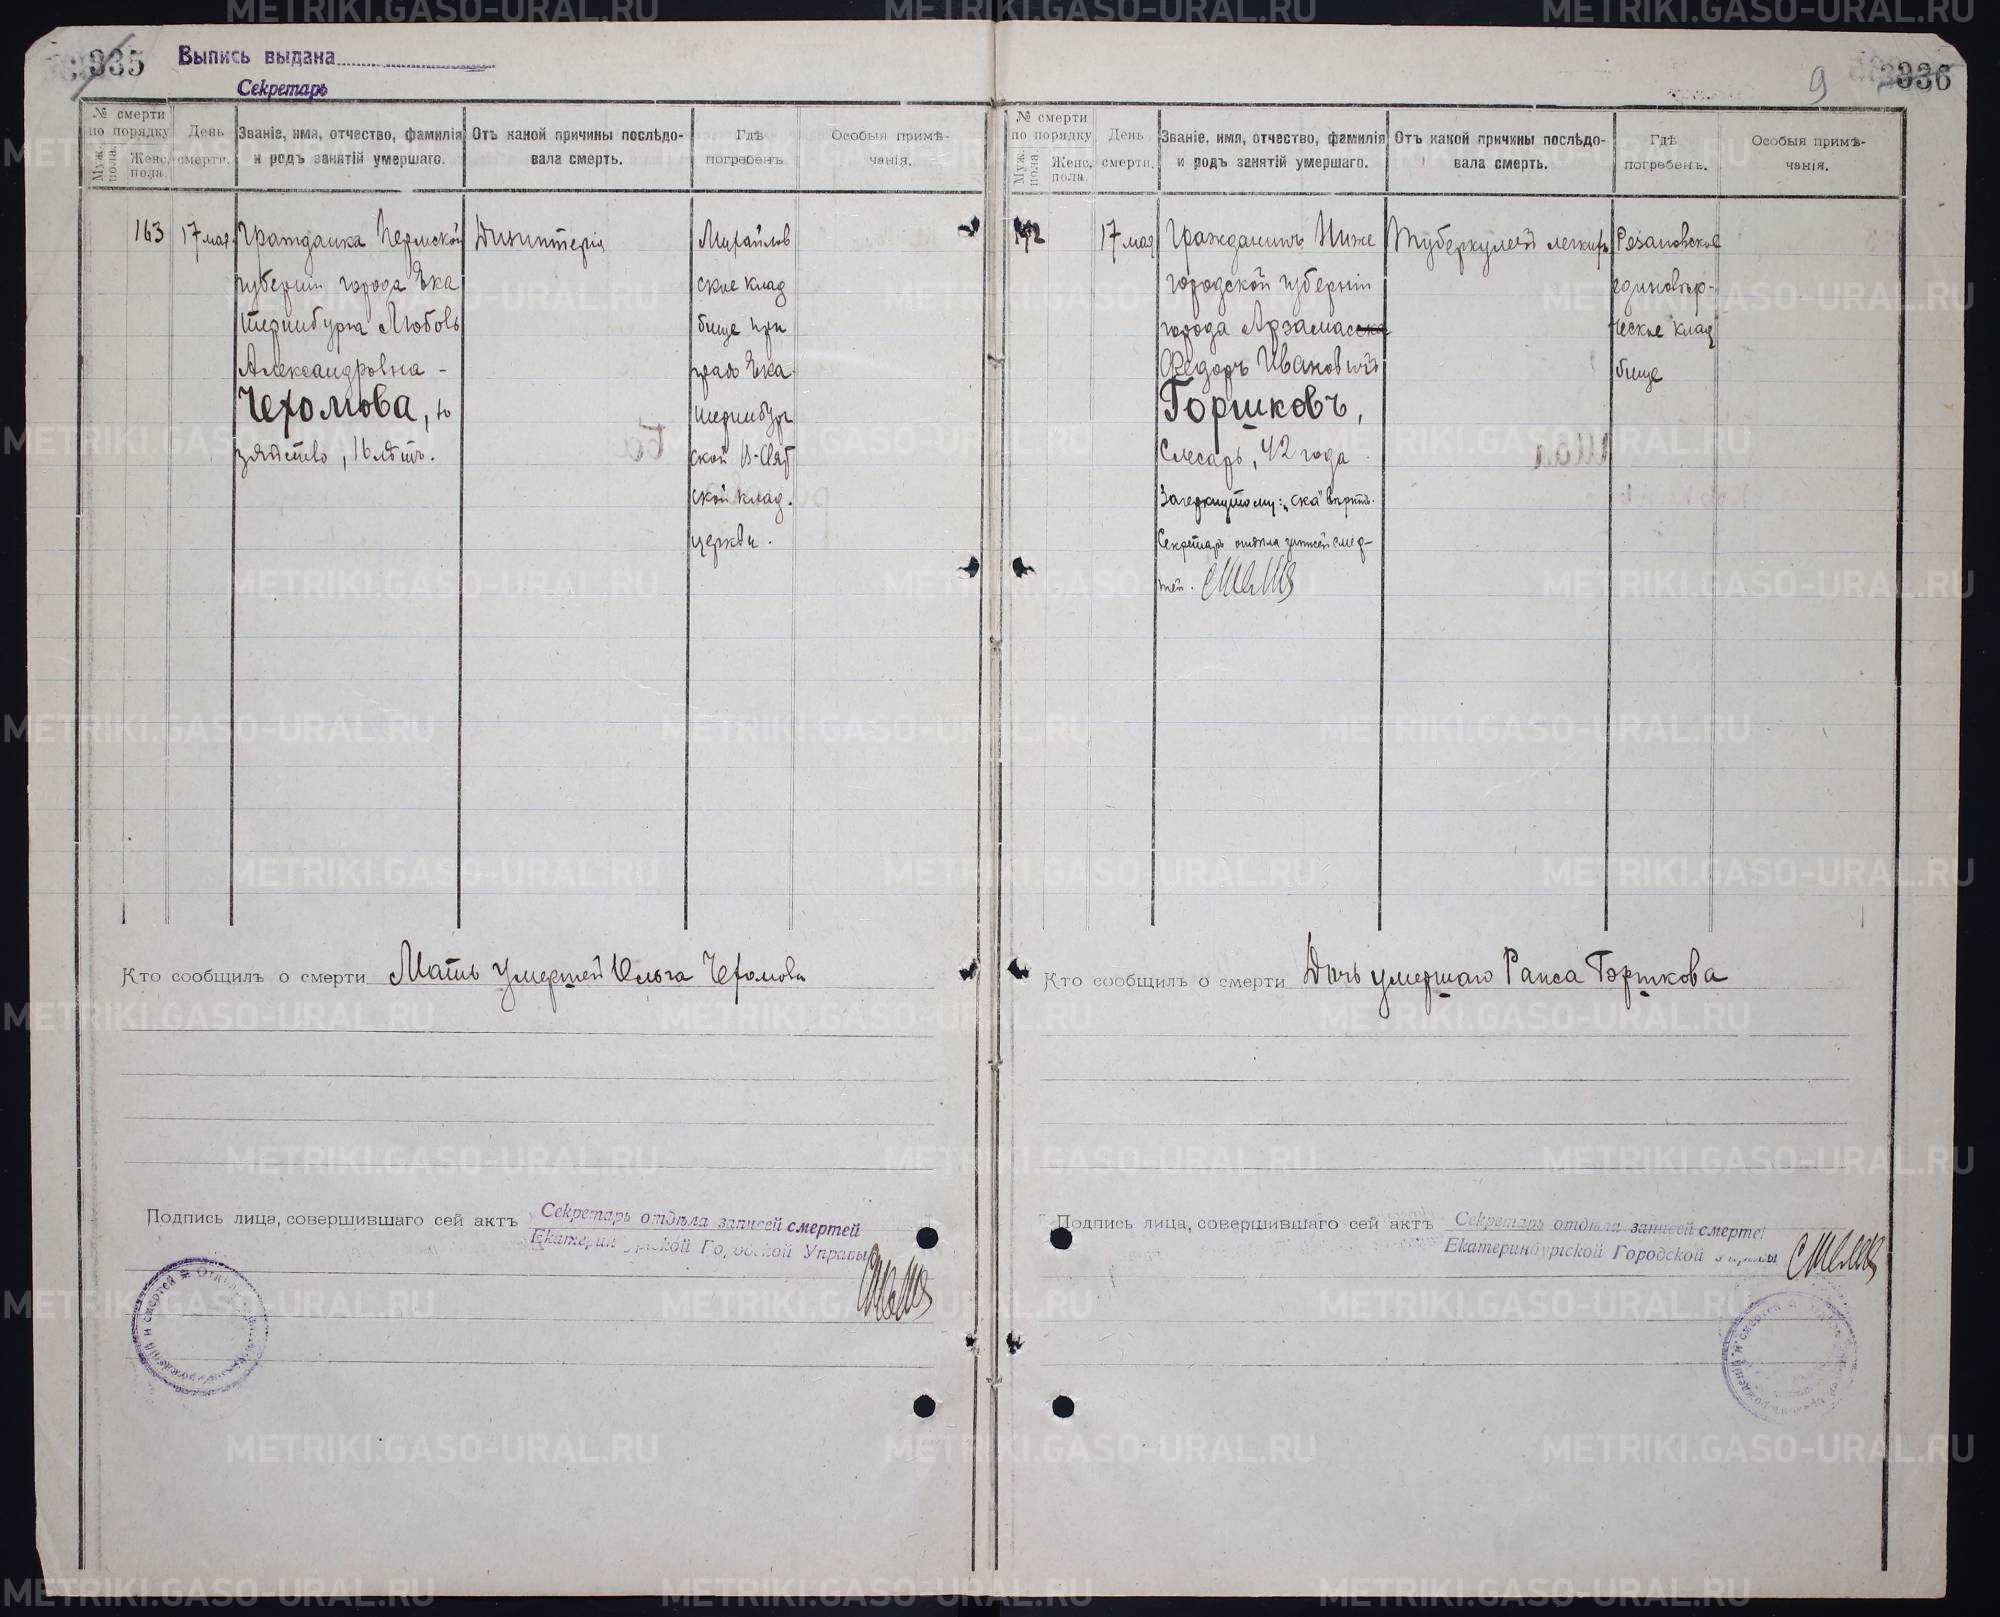 335
Выпись выдана
Секретарь
№ смерти
по порядку
Муж. пола.
Женс. пола.
День смерти.
Званіе, имя, отчество, фамилія
и родъ занятій умершаго.
Отъ какой причины послѣдо-
вала смерть.
Гдѣ
погребенъ.
Особыя примѣ-
чанія.
163
17 мая
Гражданка Пермской
губернии города Ека
теринбурга Любовь
Александровна -
Чехомова,
16 лѣтъ.
Дизинтерія
Михайлов
ское клад
бище при
градо Ека
теринбург
ской В-Свят
ской клад.
церкви.
Кто сообщилъ о смерти Мать умершей Ольга Чехомова
Подпись лица, совершившаго сей актъ
Секретарь отдѣла записей смертей
Екатеринбургской Городской Управы
9
336
№ смерти
по порядку
Муж. пола.
Женс. пола.
День смерти.
Званіе, имя, отчество, фамилія
и родъ занятій умершаго.
Отъ какой причины послѣдо-
вала смерть.
Гдѣ
погребенъ.
Особыя примѣ-
чанія.
17 мая
Гражданинъ Ниже
городской губерніи
города Арзамасска
Федоръ Ивановичъ
Горшковъ,
Слесарь, 42 года
Зачеркнутому: „ска" вѣрить.
Секретарь отдѣла записей смер-
тей.
Туберкулезъ легкихъ
Рязановское
единовѣр-
ческое клад
бище
Кто сообщилъ о смерти Дочь умершаго Раиса Горшкова
Подпись лица, совершившаго сей актъ
Секретарь отдѣла записей смертей
Екатеринбургской Городской Управы
METRIKI.GASO-URAL.RU